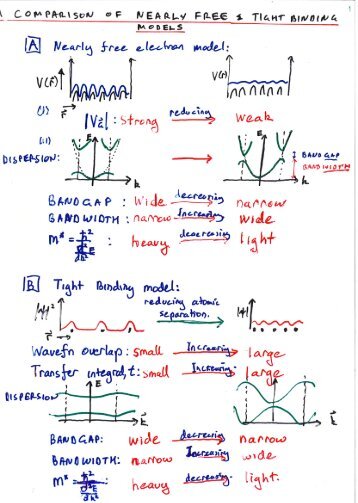 A COMPARISON OF NEARLY FREE & TIGHT BINDING
MODELS
1
A Nearly free electron model:
V(r) V(r)
r
(i) |VG| : Strong reducing weak
(ii) E E
DISPERSION: BANDGAP
BANDWIDTH
k k
BANDGAP : Wide decreasing narrow
BANDWIDTH : narrow Increasing wide
m* = ħ² / d²E/dk² : heavy decreasing light
B Tight Binding model:
|ψ|² reducing atomic |ψ|
separation.
r
Wavefn overlap : small Increasing large
Transfer integral, t : small Increasing large
E
DISPERSION k k
BANDGAP: wide decreasing narrow
BANDWIDTH: narrow Increasing wide
m* = ħ² / d²E/dk² : heavy decreasing light.